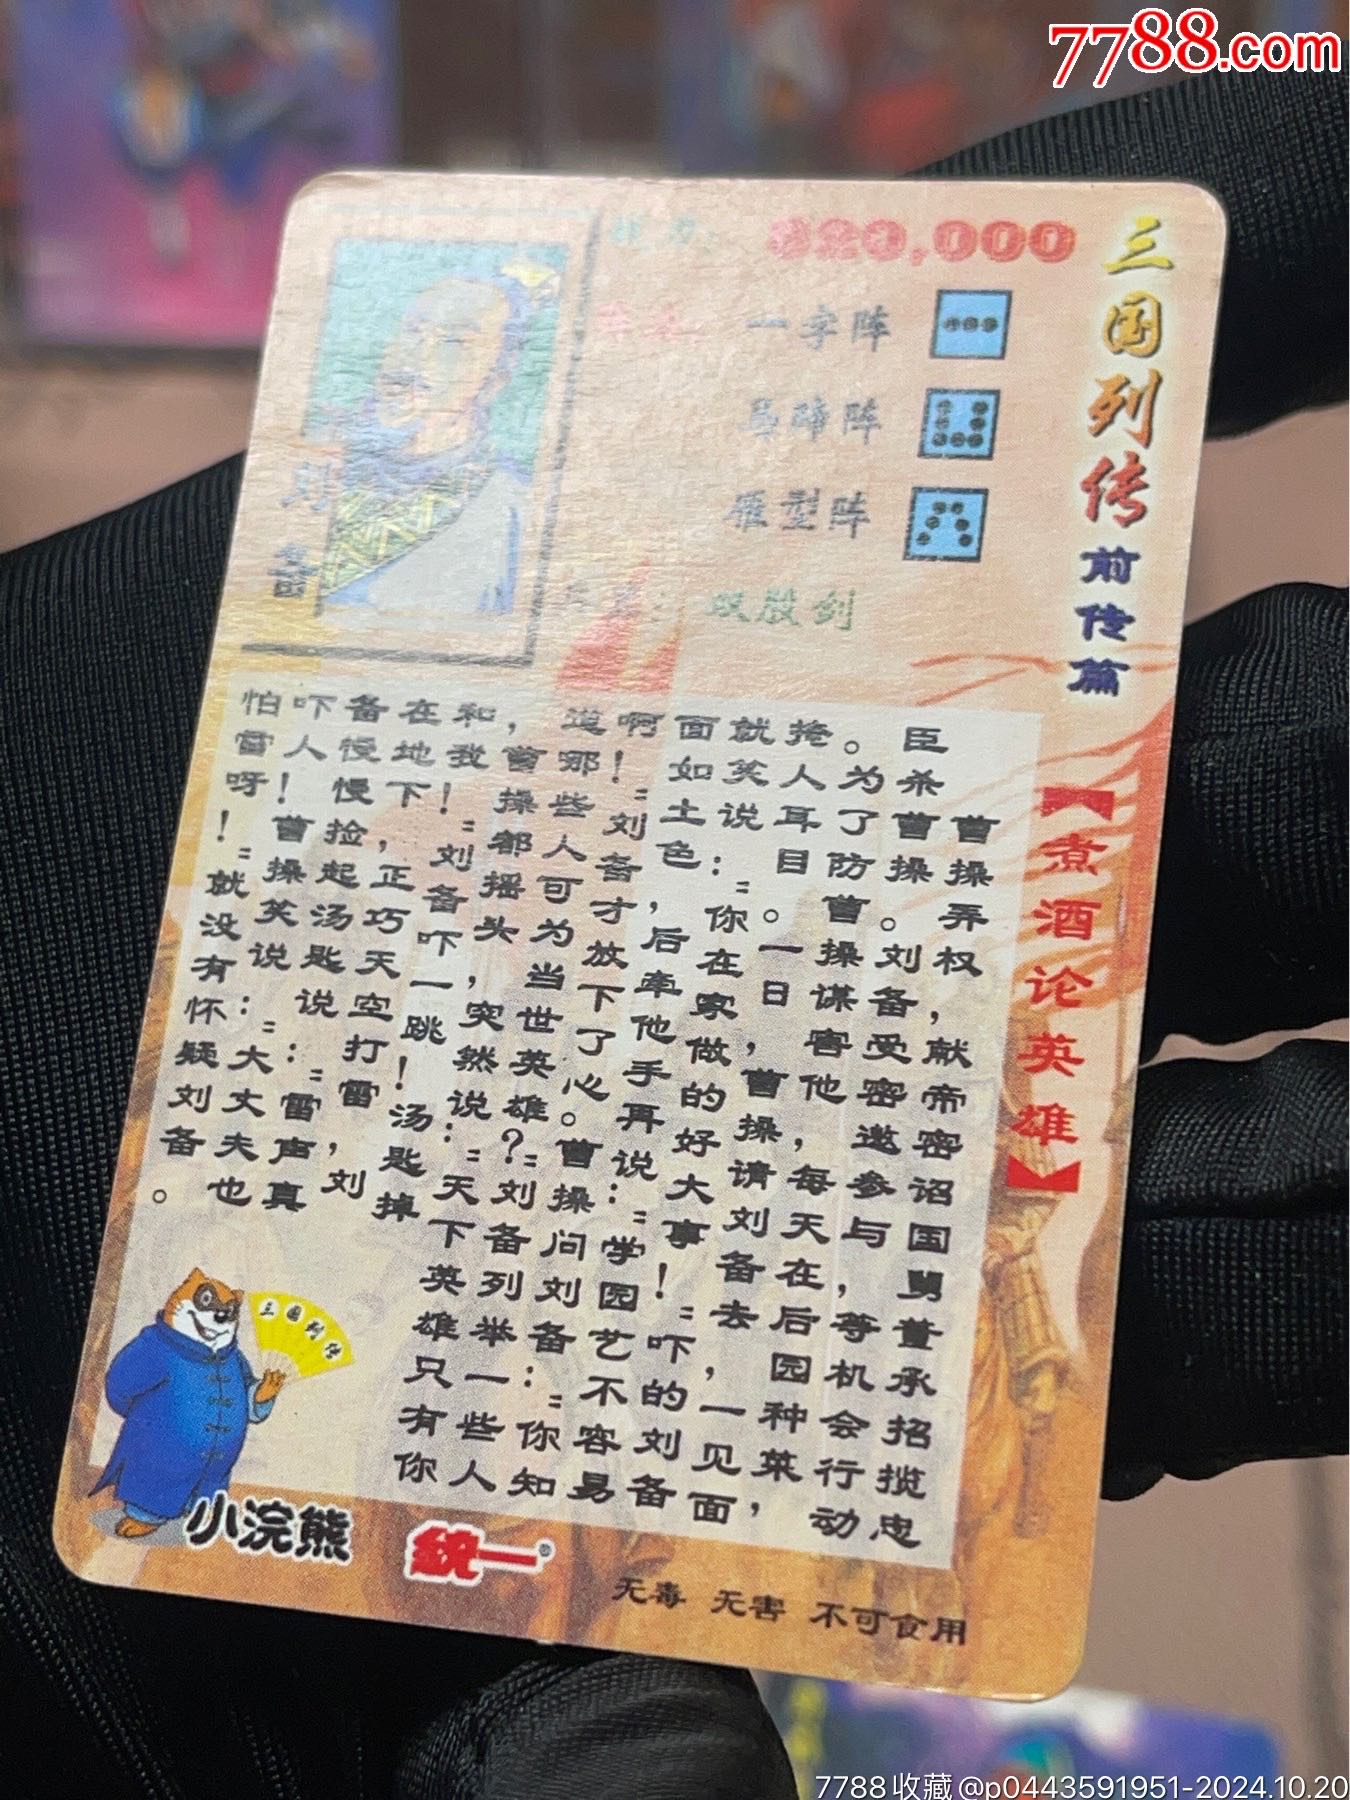 7788.com
三国列传 前传篇
【煮酒论英雄】
520,000
一字阵
马蹄阵
雁型阵
双股剑
刘备
曹操弄权，献帝密诏国舅董承招揽忠
臣杀曹操。刘备受密邀参与，等机会行动
。为了防曹操谋害他，每天在后园种菜，
掩人耳目。一日，曹操请刘备去，一见面
就笑说："你在家做的好大事！"吓的刘备
面如土色，后牵他手再说："学园艺不容易
啊！"刘备才放下了心。曹操问刘备："你知
道那些人可为当世英雄？"刘备列举一些人
，曹操都摇头，突然说："天下英雄只有你
和我！"刘备吓一跳！汤匙掉
在地下，正巧天空打雷，刘
备慢慢捡起汤匙说："雷声真
吓人！"曹操笑说："大丈夫也
怕雷呀！"就没有怀疑刘备。
三国列传
小浣熊
統一®
无毒 无害 不可食用
7788收藏@p0443591951-2024.10.20